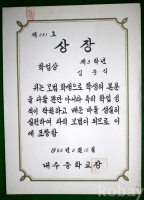 제 201 호
상장
학업상
제 3 학년
김
위는 모범 학생으로 학생의 본분
을 다할 뿐만 아니라 특히 학업 성
적이 우수하고 배운 바를 성실히
실천하여 타의 모범이 되므로 이
에 표창함
내수중학교장
kobay